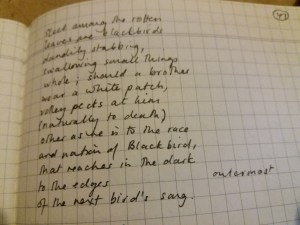 among the rotten
leaves are blackbirds
daintily stabbing,
swallowing small things
whole; should a brother
wear a white patch,
they pecks at him
(naturally to death)
other as he is to the race
and nation of Blackbird,
that reaches in the dark
to the edges
outermost
of the next bird's song.